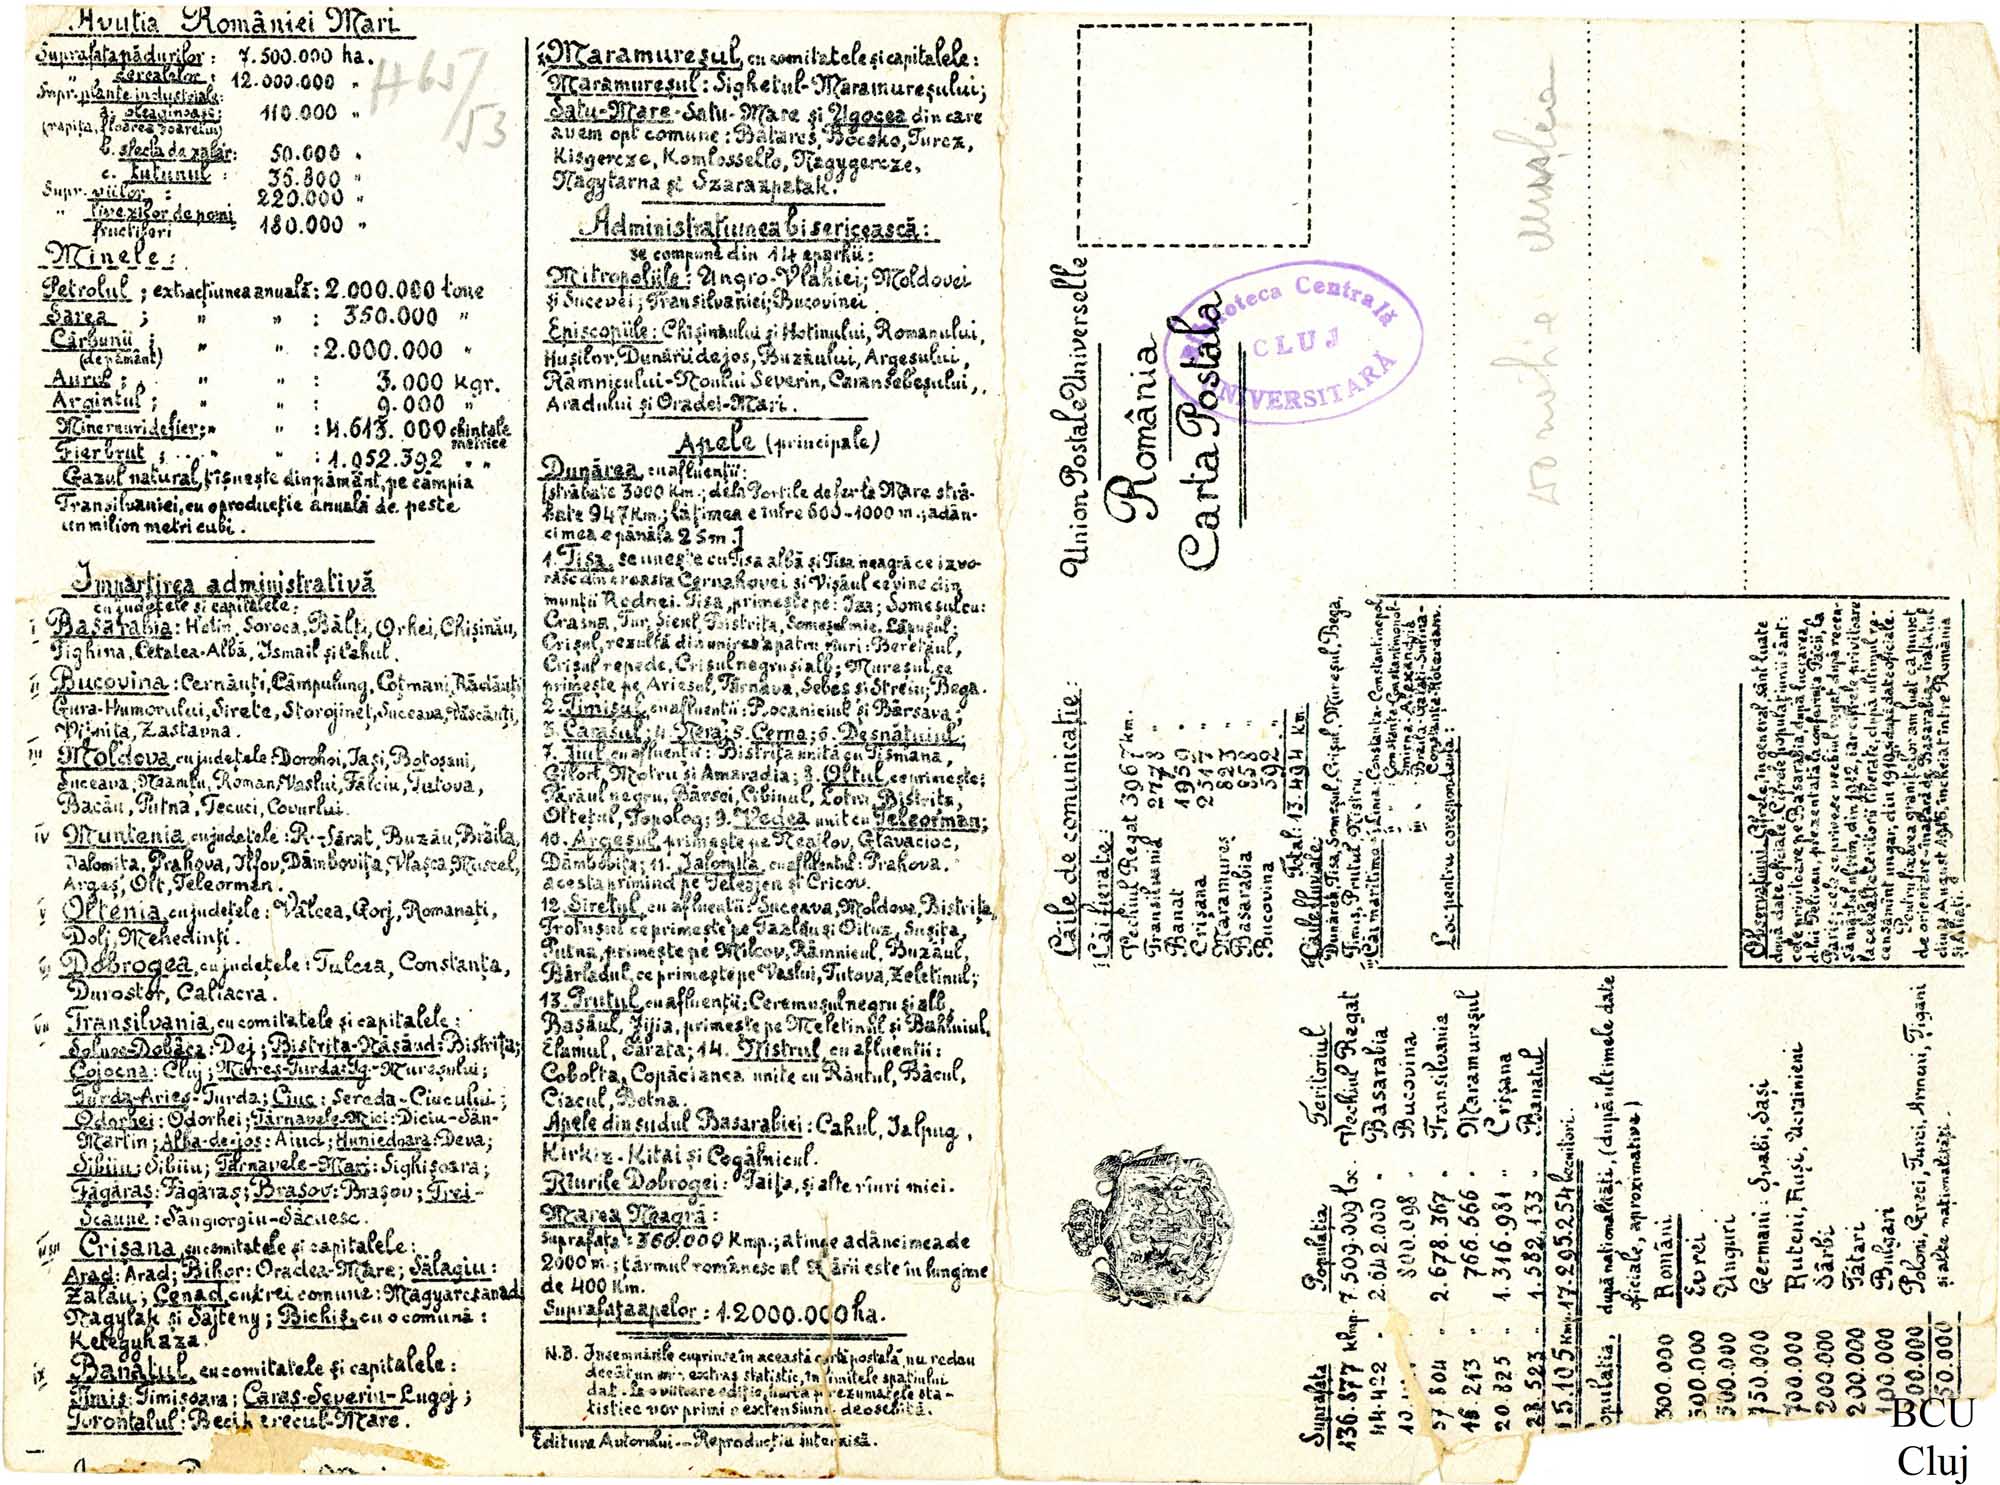 Avuția României Mari
Suprafața pădurilor: 7.500.000 ha.
" , cerealelor: 12.000.000 "
Supr. plante industriale:
a. oleaginoase: 110.000 "
(rapița, floarea soarelui)
b. sfecla de zahăr: 50.000 "
c. tutunul: 35.800 "
Supr. viilor: 220.000 "
" livezilor de pomi 180.000 "
fructiferi
Minele:
Petrolul; extracțiunea anuală: 2.000.000 tone
Sarea; " " : 350.000 "
Cărbunii; " " : 2.000.000 "
(de pământ)
Aurul; " " : 3.000 kgr.
Argintul; " " : 9.000 "
Minereuri de fier; " " : 4.615.000 chintale metrice
Fier brut; " " : 1.052.392 " "
Gazul natural, țîșnește din pământ, pe câmpia
Transilvaniei, cu o producție anuală de peste
un milion metri cubi.
Împărțirea administrativă
cu județele și capitalele:
I Basarabia: Hotin, Soroca, Bălți, Orhei, Chișinău,
Tighina, Cetatea-Albă, Ismail și Cahul.
II Bucovina: Cernăuți, Câmpulung, Coțmani, Rădăuți
Gura-Humorului, Sirete, Storojineț, Suceava, Văscăuți,
Vijnița, Zastavna.
III Moldova, cu județele: Dorohoi, Iași, Botoșani,
Suceava, Neamțu, Roman, Vaslui, Fălciu, Tutova,
Bacău, Putna, Tecuci, Covurlui.
IV Muntenia, cu județele: R.-Sărat, Buzău, Brăila,
Ialomița, Prahova, Ilfov, Dâmbovița, Vlașca, Muscel,
Argeș, Olt, Teleorman.
V Oltenia, cu județele: Vâlcea, Gorj, Romanați,
Dolj, Mehedinți.
VI Dobrogea, cu județele: Tulcea, Constanța,
Durostor, Caliacra.
VII Transilvania, cu comitatele și capitalele:
Solnoc-Dobâca: Dej; Bistrița-Năsăud: Bistrița;
Cojocna: Cluj; Mureș-Turda: Tg-Mureșului;
Turda-Arieș-Turda; Ciuc: Sereda-Ciucului;
Odorhei: Odorhei; Târnavele-Mici: Diciu-Sân-
Martin; Alba-de-jos: Aiud; Huniedoara: Deva;
Sibiiu: Sibiiu; Târnavele-Mari: Sighișoara;
Făgăraș: Făgăraș; Brașov: Brașov; Trei-
Scaune: Sângiorgiu-Săcuesc.
VIII Crișana, cu comitatele și capitalele:
Arad: Arad; Bihor: Oradea-Mare; Sălagiu:
Zalău; Cenad, cu trei comune: Magyarcsanad
Nagylak și Sajteny; Bichiș, cu o comună:
Keteguhaza.
IX Banatul, cu comitatele și capitalele:
Timiș: Timișoara; Caraș-Severin-Lugoj;
Torontalul: Becikerecul-Mare.
X Maramureșul, cu comitatele și capitalele:
Maramureșul: Sighetul-Maramureșului;
Satu-Mare-Satu-Mare și Ugocea din care
avem opt comune: Batarcs, Bocsko, Turcz,
Kisgercze, Komlossello, Nagygercze,
Nagytarna și Szarazpatak.
Administrațiunea bisericească:
se compune din 14 eparhii:
Mitropoliile: Ungro-Vlahiei; Moldovei
și Sucevei; Transilvaniei; Bucovinei
Episcopiile: Chișinăului și Hotinului, Romanului,
Hușilor, Dunării de jos, Buzăului, Argeșului,
Râmnicului-Noului Severin, Caransebeșului,
Aradului și Oradei-Mari.
Apele (principale)
Dunărea, cu afluenții:
[străbate 3000 km.; dela Porțile de fer la Mare stră-
bate 947 km.; lățimea e între 600-1000 m.; adân-
cimea e până la 25 m.]
1. Tisa, se unește cu Tisa albă și Tisa neagră ce izvo-
răsc din coasta Cernahovei și Vișăul ce vine din
munții Rodnei. Tisa, primește pe: Iza; Someșul cu:
Crasna, Tur, Șieul, Bistrița, Someșul mic, Lăpușul;
Crișul, rezultă din unirea a patru rîuri: Beretăul,
Crișul repede, Crișul negru și alb; Mureșul, ce
primește pe Arieșul, Târnava, Sebeș și Streiu; Bega.
2. Timișul, cu afluenții: Pocaniciul și Bârsava;
3. Carașul; 4. Nera; 5. Cerna; 6. Desnățuiul;
7. Jiul cu afluenții: Bistrița unită cu Tismana,
Gilort, Motru și Amaradia; 8. Oltul, ce primește:
Părăul negru, Bârsei, Cibinul, Lotru, Bistrița,
Oltețul, Topolog; 9. Vedea unit cu Teleorman;
10. Argeșul, primește pe Neajlov, Glavacioc,
Dâmbovița; 11. Ialomița, cu afluentul: Prahova,
acesta primind pe Teleajen și Cricov.
12. Siretul, cu afluenții: Suceava, Moldova, Bistrița,
Trotușul ce primește pe Tazlău și Oituz, Sușița,
Putna, primește pe Milcov, Râmnicul, Buzăul,
Bârladul, ce primește pe Vaslui, Tutova, Zeletinul;
13. Prutul, cu afluenții: Ceremușul negru și alb,
Bașăul, Jijia, primește pe Meletinul și Bahluiul,
Elanul, Sărata; 14. Nistrul, cu afluenții:
Cobolta, Copăcianca unite cu Răutul, Bâcul,
Ciacul, Botna.
Apele din sudul Basarabiei: Cahul, Ialpug,
Kirkiz-Kitai și Cogâlnicul.
Rîurile Dobrogei: Taița, și alte rîuri mici.
Marea Neagră:
Suprafața: 360.000 Kmp.; atinge adâncimea de
2000 m.; țărmul românesc al Mării este în lungime
de 400 Km.
Suprafața apelor: 1.2000.000 ha.
N.B. Însemnările cuprinse în această cartă postală, nu redau
decât un mic extras statistic, în limitele spațiului
dat. La o viitoare ediție, harta și rezumatele sta-
tistice vor primi o extensiune deosebită.
Editura Autorului.—Reproducția interzisă.
H657/53
Union Postale Universelle
România
Carta Postala
Biblioteca Centrală
CLUJ
UNIVERSITARĂ
Căile de comunicație:
Căi ferate:
Vechiul Regat 3967 km.
Transilvania 2778 "
Banat 1959 "
Crișana 2517 "
Maramureș 823 "
Basarabia 858 "
Bucovina 592 "
Total: 13.494 km.
Căile fluviale:
Dunărea, Tisa, Someșul, Crișul, Mureșul, Bega,
Timiș, Prutul, Nistru.
Căi maritime: Linia: Constanța-Constantinopol
" : Constanța-Constantinopol-
Smirna-Alexandria
" : Brăila-Galați-Sulina-
Constanța-Roterdam.
Loc pentru corespondență:
Observațiuni: Cifrele, în general, sânt luate
după date oficiale. Cifrele populațiunii sânt:
cele privitoare pe Basarabia, după lucrarea
d-lui Pelivan, prezentată la conferința Păcii, la
Paris; cele ce privesc vechiul regat, după recen-
sământul ultim, din 1912, iar cifrele privitoare
la celelalte teritorii liberate, după ultimul re-
censământ ungar, din 1910, și după date oficiale.
Pentru fixarea granițelor am luat ca punct
de orientare-în afară de Basarabia-tratatul
din 4 August 1916, încheiat între România
și Aliați.
Suprafața Populația Teritoriul
136.877 kmp. 7.509.009 loc. Vechiul Regat
44.422 " 2.642.000 " Basarabia
10. 800.098 " Bucovina
57.804 " 2.678.367 " Transilvania
16.213 " 766.666 " Maramureșul
20.825 " 1.316.981 " Crișana
28.523 " 1.582.133 " Banatul
15.105 kmp. 17.295.254 locuitori.
opulația, după naționalități, (după ultimele date
oficiale, aproximative)
300.000 Români
500.000 Evrei
500.000 Unguri
750.000 Germani: Șvabi, Sași
700.000 Ruteni, Ruși, Ucrainieni
200.000 Sârbi
200.000 Tătari
100.000 Bulgari
100.000 Poloni, Greci, Turci, Armeni, Țigani
50.000 și alte naționalități.
BCU
Cluj